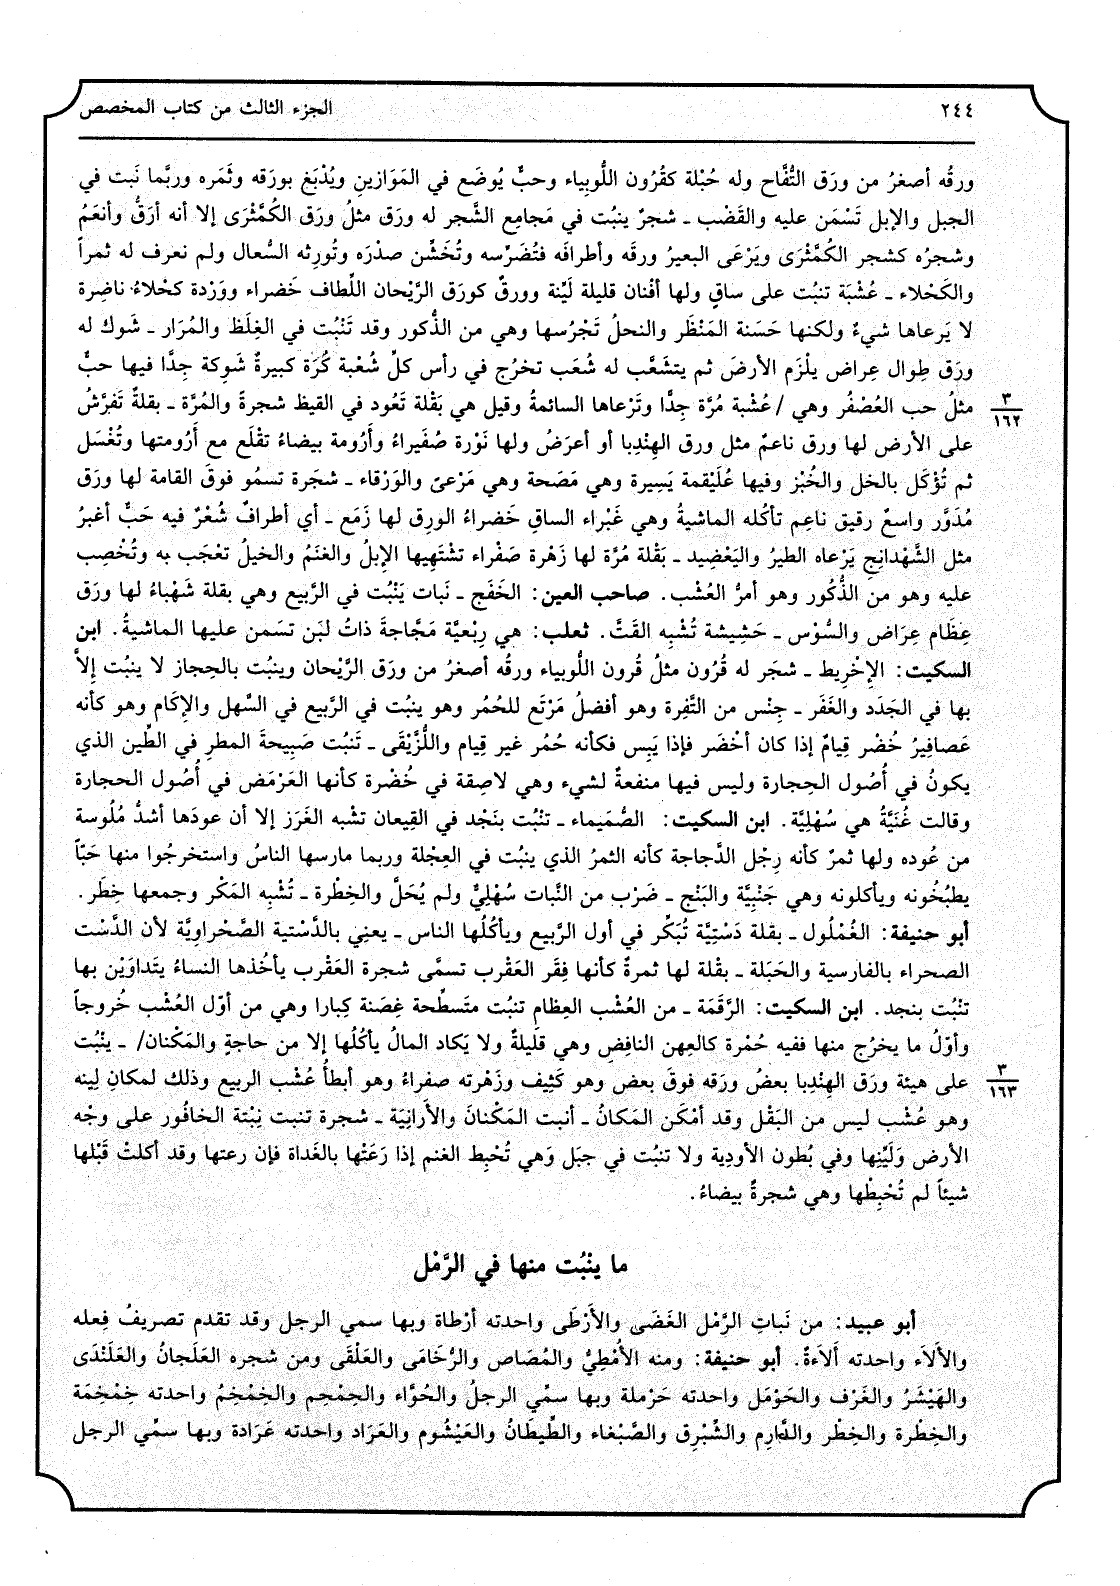 ٢٤٤
الجزء الثالث من كتاب المخصص
ورقُه أصغرُ من ورَق التُّفَّاح وله حُبْلة كقُرُون اللُّوبِياء وحبٌّ يُوضَع في المَوَازينِ ويُدْبَغ بورَقه وثَمَره وربَّما نَبت في
الجبل والإبل تَسْمَن عليه والقَضْب ـ شجرٌ ينبُت في مَجامِع الشَّجر له ورَق مثلُ ورَق الكُمَّثْرَى إلا أنه أرَقُّ وأنعَمُ
وشجرُه كشجر الكُمَّثْرَى ويَرْعَى البعيرُ ورقَه وأطرافَه فتُضَرِّسه وتُخَشِّن صدرَه وتُورِثه السُّعال ولم نعرف له ثمراً
والكَحْلاء ـ عُشْبَة تنبُت على ساقٍ ولها أفْنان قليلة لَيِّنة وورقٌ كورَق الرَّيْحان اللِّطاف خَضراء ووَرْدة كحْلاءُ ناضِرة
لا يَرعاها شيءٌ ولكنها حَسَنة المَنْظَر والنحلُ تَجْرُسها وهي من الذُّكور وقد تَنْبُت في الغِلَظ والمُرَار ـ شَوك له
ورَق طِوال عِراض يلْزَم الأرضَ ثم يتشَعَّب له شُعَب تخرُج في رأس كلِّ شُعْبة كُرَة كبيرةٌ شَوِكة جِدًّا فيها حبٌّ
مثلُ حب العُصْفُر وهي / عُشْبة مُرَّة جِدًّا وتَرْعاها السائمةُ وقيل هي بَقْلة تَعُود في القيظ شجرةً والمُرَّة ـ بقلةٌ تَفرَّشُ
٣
١٦٢
على الأرض لها ورق ناعمٌ مثل ورق الهِنْدِبا أو أعرَضُ ولها نَوْرة صُفَيراءُ وأَرُومة بيضاءُ تقْلَع مع أَرُومتها وتُغْسَل
ثم تُؤْكَل بالخل والخُبْز وفيها عُلَيْقمة يَسِيرة وهي مَصَحة وهي مَرْعىً والوَرْقاء ـ شجَرة تسمُو فوقَ القامة لها ورَق
مُدَوَّر واسعٌ رقيق ناعِم تأكُله الماشيةُ وهي غَبْراء الساقِ خَضراءُ الورِق لها زَمَع ـ أي أطرافٌ شُعْرٌ فيه حَبٌّ أغبرُ
مثل الشَّهْدانِج يَرْعاه الطيرُ واليَعْضِيد ـ بَقْلة مُرَّة لها زَهْرة صَفْراء تشْتَهِيها الإبلُ والغنَمُ والخيلُ تعْجَب به وتُخْصِب
عليه وهو من الذُّكُور وهو أمرُّ العُشْب. صاحب العين: الخَفَج ـ نَبات يَنْبُت في الرَّبيع وهي بقلة شَهْباءُ لها ورَق
عِظَام عِرَاض والسُّوْس ـ حَشِيشة تُشْبِه القَتَّ. ثعلب: هي رِبْعيَّة مَجَّاجة ذاتُ لبَن تسَمن عليها الماشيةُ. ابن
السكيت: الإِخْرِيط ـ شجَر له قُرُون مثلُ قُرون اللُّوبياء ورقُه أصغرُ من ورَق الرَّيْحان وينبُت بالحِجاز لا ينبُت إلاَّ
بها في الجَدَد والغَفَر ـ جِنْس من التَّفِرة وهو أفضلُ مَرْتَع للحُمُر وهو ينبُت في الرَّبيع في السَّهل والإكَام وهو كأنه
عَصافِيرُ خُضْر قِيامٌ إذا كان أخْضَر فإذا يَبِس فكأنه حُمُر غير قِيام واللُّزَّيْقَى ـ تَنبُت صَبِيحةَ المطرِ في الطِّين الذي
يكونُ في أُصُول الحِجارة وليس فيها منفعةٌ لشيء وهي لاصِقة في خُضْرة كأنها العَرْمَض في أُصُول الحجارة
وقالت غُنَيَّةُ هي سُهْلِيَّة. ابن السكيت: الصُّمَيماء ـ تنْبُت بنَجْد في القِيعان تشْبه الغَرَز إلا أن عودَها أشدُّ مُلُوسة
من عُوده ولها ثمرٌ كأنه رِجْل الدَّجاجة كأنه الثمرُ الذي ينبُت في العِجْلة وربما مارسها الناسُ واستخرجُوا منها حَبّاً
يطبُخونه ويأكلونه وهي جَنْبِيَّة والبَنْج ـ ضَرْب من النَّبات سُهْلِيٌّ ولم يُحَلَّ والخِطْرة ـ تُشْبِه المَكْر وجمعها خِطَر.
أبو حنيفة: الغُمْلُول ـ بقلة دَسْتِيَّة تُبَكِّر في أول الرَّبيع ويأكُلُها الناس ـ يعنِي بالدَّسْتية الصَّحْراوِيَّة لأن الدَّسْت
الصحراء بالفارسية والحَبَلة ـ بقْلة لها ثمرةٌ كأنها فِقَر العَقْرب تسمَّى شجرة العَقْرب يأخُذها النساءُ يتَداوَيْن بها
تنْبُت بنجد. ابن السكيت: الرَّقَمَة ـ من العُشْب العِظامِ تنبُت متَسطِّحة غِصَنة كِبارا وهي من أوّل العُشْب خُروجاً
وأوّلُ ما يخرُج منها ففيه حُمْرة كالعِهن النافِض وهي قليلةٌ ولا يَكاد المالُ يأكُلُها إلا من حاجةٍ والمَكْنان/ ـ ينْبُت
٣
١٦٣
على هيئة ورَق الهِنْدِبا بعضُ ورَقه فوقَ بعض وهو كَثِيف وزَهْرته صفراءُ وهو أبطأُ عُشْب الربيع وذلك لمكانِ لِينه
وهو عُشْب ليس من البَقْل وقد أمْكَن المَكانُ ـ أنبت المَكْنانَ والأَرانِيَة ـ شجَرة تنبت نِبْتة الخافُور على وجْه
الأرض وَلَيِّنِها وفي بُطون الأودِية ولا تنبُت في جبَل وَهي تُحْبِط الغنم إذا رَعَتْها بالغَداة فإن رعتها وقد أكلتْ قَبْلها
شيئاً لم تُحْبِطْها وهي شجرةٌ بيضاءُ.
ما ينْبُت منها في الرَّمْل
أبو عبيد: من نَباتِ الرَّمْل الغَضَى والأَرْطَى واحدته أرْطاة وبها سمي الرجل وقد تقدم تصريفُ فِعله
والألاَء واحدته ألاَءةٌ. أبو حنيفة: ومنه الأُمْطِيُّ والمُصَاص والرُّخَامى والعَلْقَى ومن شجره العَلَجانُ والعَلَنْدَى
والهَيْشَرُ والغَرْف والحَوْمَل واحدته حَرْملة وبها سمِّي الرجلُ والحُوَّاء والحِمْحِم والخِمْخِمُ واحدته خِمْخِمَة
والخِطْرة والخِطْر والدَّارِم والشِّبْرِق والصَّبْغاء والطِّيطَانُ والعَيْشُوم والعَرَاد واحدته عَرَادة وبها سمِّي الرجل